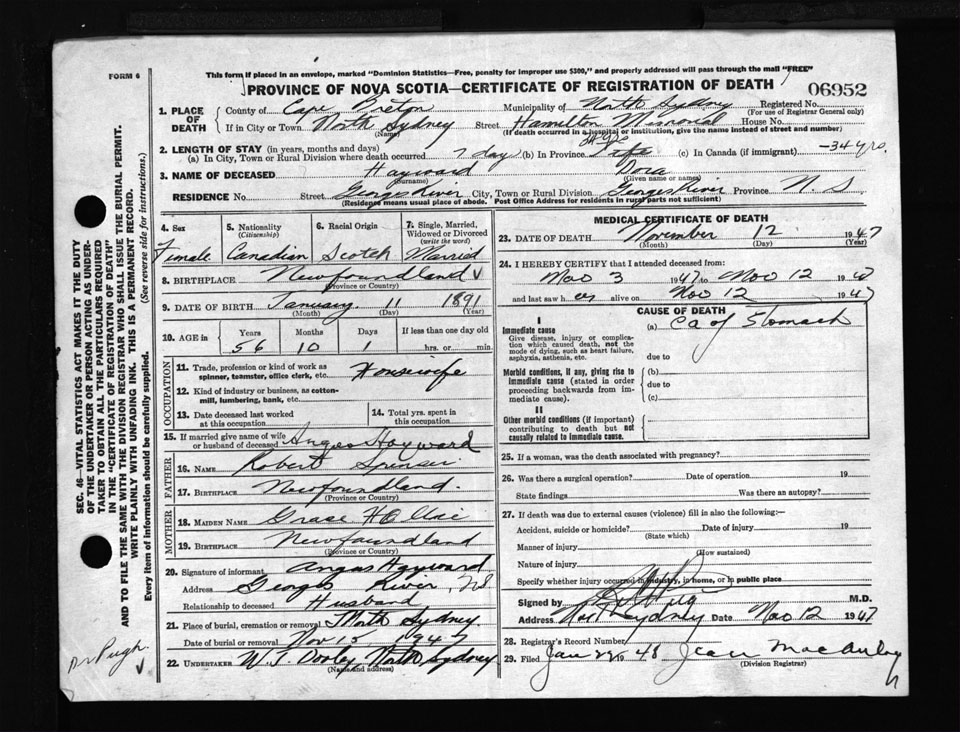 FORM 6
This form if placed in an envelope, marked "Dominion Statistics—Free, penalty for improper use $300," and properly addressed will pass through the mail "FREE"
PROVINCE OF NOVA SCOTIA—CERTIFICATE OF REGISTRATION OF DEATH 06952
1. PLACE OF DEATH
County of Cape Breton Municipality of North Sydney Registered No.
(For use of Registrar General only)
If in City or Town North Sydney Street Hamilton Memorial House No.
(Name) (If death occurred in a hospital or institution, give the name instead of street and number)
2. LENGTH OF STAY (in years, months and days)
(a) In City, Town or Rural Division where death occurred 7 days (b) In Province (c) In Canada (if immigrant) 34 yrs.
3. NAME OF DECEASED Hayward Dora
(Surname) (Given name or names)
RESIDENCE No. Street Georges River City, Town or Rural Division Georges River Province N. S
(Residence means usual place of abode. Post Office Address for residents in rural parts not sufficient)
4. Sex Female
5. Nationality (Citizenship) Canadian
6. Racial Origin Scotch
7. Single, Married, Widowed or Divorced (write the word) Married
8. BIRTHPLACE Newfoundland
(Province or Country)
9. DATE OF BIRTH January 11 1891
(Month) (Day) (Year)
10. AGE in Years Months Days If less than one day old
56 10 1 hrs. or min.
OCCUPATION
11. Trade, profession or kind of work as spinner, teamster, office clerk, etc. Housewife
12. Kind of industry or business, as cotton-mill, lumbering, bank, etc.
13. Date deceased last worked at this occupation
14. Total yrs. spent in this occupation
15. If married give name of wife or husband of deceased Angus Hayward
FATHER
16. NAME Robert Spencer
17. BIRTHPLACE Newfoundland.
(Province or Country)
MOTHER
18. MAIDEN NAME Grace
19. BIRTHPLACE Newfoundland
(Province or Country)
20. Signature of informant Angus Hayward
Address Georges River, N.S.
Relationship to deceased Husband
21. Place of burial, cremation or removal North Sydney
Date of burial or removal Nov 15 1947
22. UNDERTAKER W. J. Dooley, North Sydney
(Name and address)
MEDICAL CERTIFICATE OF DEATH
23. DATE OF DEATH November 12 1947
(Month) (Day) (Year)
24. I HEREBY CERTIFY that I attended deceased from:
Nov 3 1947 to Nov 12 1947
and last saw her alive on Nov 12 1947
CAUSE OF DEATH
I
Immediate cause (a) Ca of Stomach
Give disease, injury or complication which caused death, not the mode of dying, such as heart failure, asphyxia, asthenia, etc.
due to
Morbid conditions, if any, giving rise to immediate cause (stated in order proceeding backwards from immediate cause).
(b)
due to
(c)
II
Other morbid conditions (if important) contributing to death but not causally related to immediate cause.
25. If a woman, was the death associated with pregnancy?
26. Was there a surgical operation? Date of operation 19
State findings Was there an autopsy?
27. If death was due to external causes (violence) fill in also the following:—
Accident, suicide or homicide? Date of injury 19
(State which)
Manner of injury
(How sustained)
Nature of injury
Specify whether injury occurred in industry, in home, or in public place
Signed by M.D.
Address North Sydney Date Nov 12 1947
28. Registrar's Record Number
29. Filed Jan 29 1948 Jean MacAulay
(Division Registrar)
SEC. 46—VITAL STATISTICS ACT MAKES IT THE DUTY
OF THE UNDERTAKER OR PERSON ACTING AS UNDER-
TAKER TO OBTAIN ALL THE PARTICULARS REQUIRED
IN THE "CERTIFICATE OF REGISTRATION OF DEATH"
AND TO FILE THE SAME WITH THE DIVISION REGISTRAR WHO SHALL ISSUE THE BURIAL PERMIT.
WRITE PLAINLY WITH UNFADING INK. THIS IS A PERMANENT RECORD.
Every item of information should be carefully supplied. (See reverse side for instructions).
Dr Pugh.